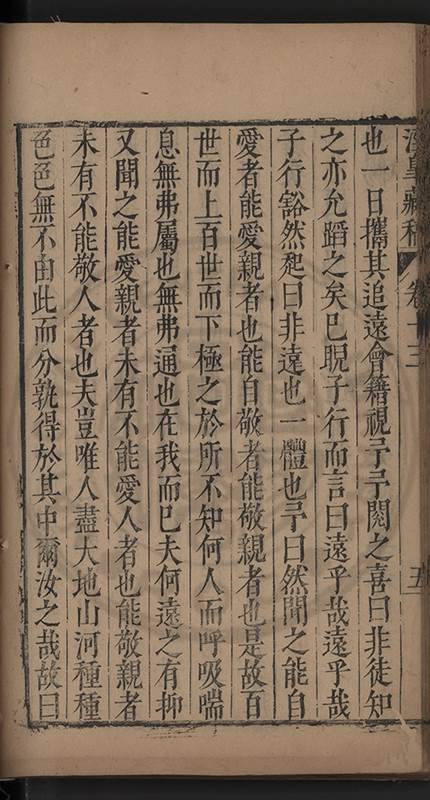 漢皇藏稿 卷十三 五
也一日攜其追遠會籍視予予閱之喜曰非徒知
之亦允蹈之矣已睨子行而言曰遠乎哉遠乎哉
子行豁然起曰非遠也一體也予曰然聞之能自
愛者能愛親者也能自敬者能敬親者也是故百
世而上百世而下極之於所不知何人而呼吸喘
息無弗屬也無弗通也在我而已夫何遠之有抑
又聞之能愛親者未有不能愛人者也能敬親者
未有不能敬人者也夫豈唯人盡大地山河種種
色色無不由此而分孰得於其中爾汝之哉故曰